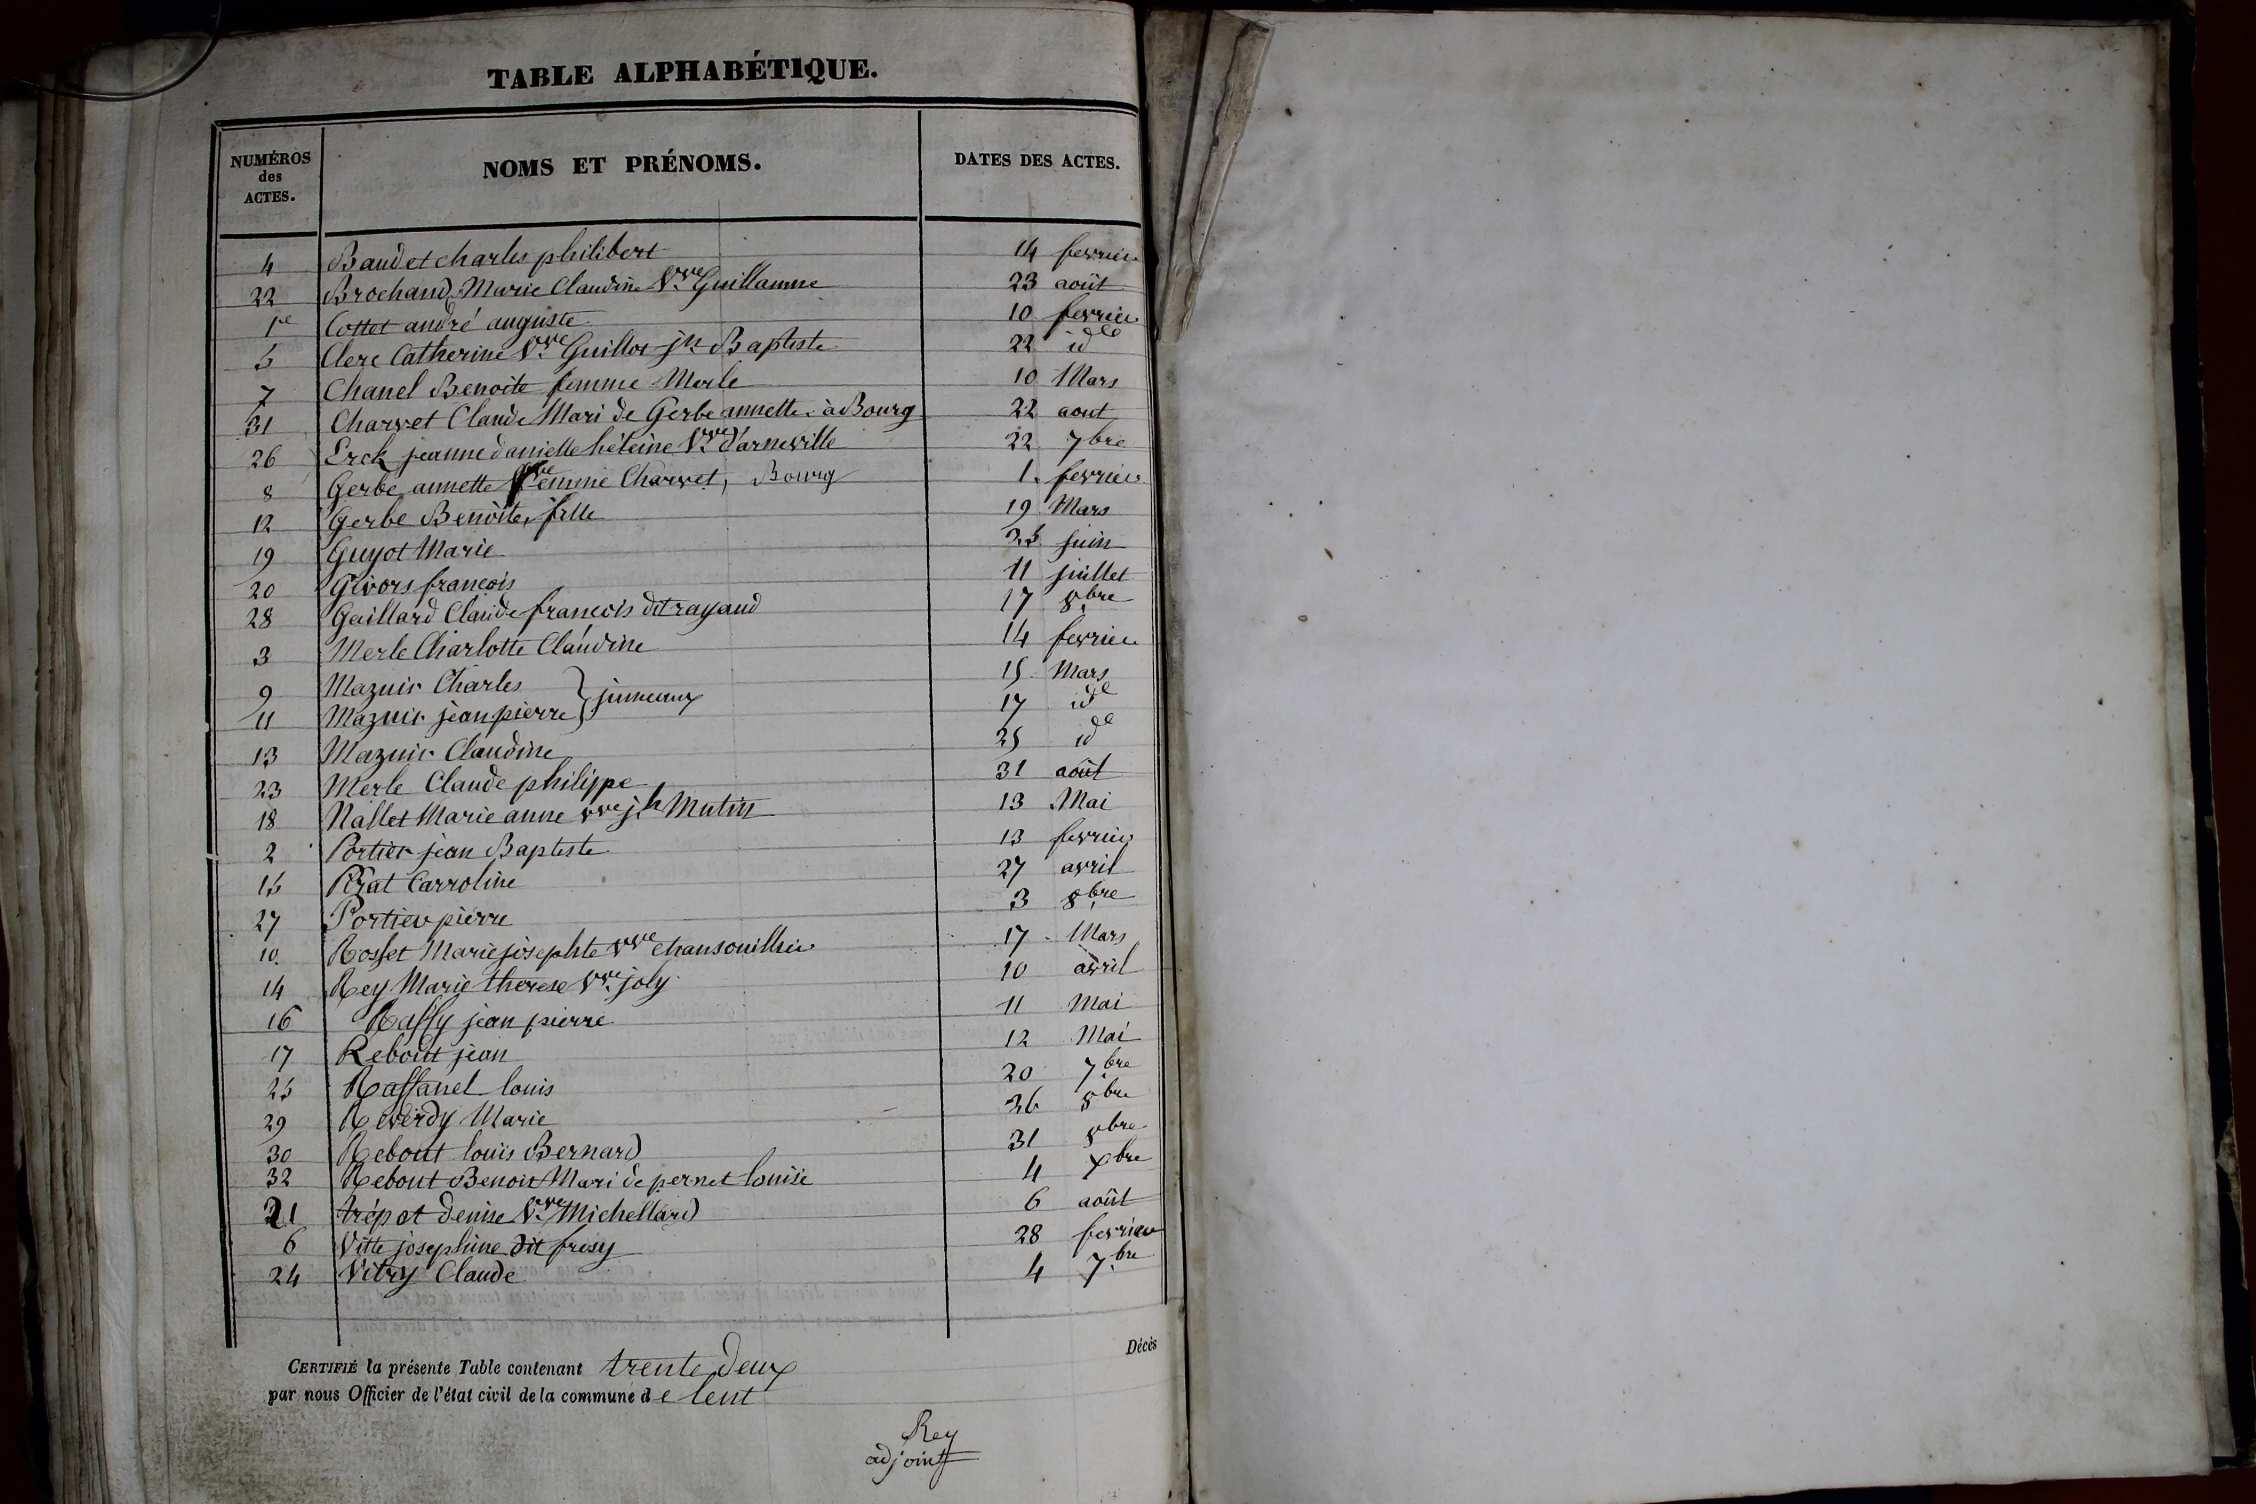 TABLE ALPHABÉTIQUE.
NUMÉROS des ACTES. NOMS ET PRÉNOMS. DATES DES ACTES.
4 Baudet charles philibert 14 fevrier
22 Brochand Marie Claudine Vve Guillaume 23 août
1e Cottet andré auguste 10 fevrier
5 Clerc Catherine Vve Guillot jn Baptiste 22 id
7 Chanel Benoite femme Merle 10 Mars
31 Charvet Claude Mari de Gerbe annette à Bourg 22 aout
26 Erck jeanne danielle héleine Vve d'arneville 22 7bre
8 Gerbe annette femme Charvet, Bourg 1. fevrier
12 Gerbe Benoite, fille 19 Mars
19 Guyot Marie 25 juin
20 Givors françois 11 juillet
28 Gaillard Claude francois dit rayaud 17 8bre
3 Merle Charlotte Claudine 14 fevrier
9 Mazuir Charles 15 Mars
jumeaux
11 Mazuir jean pierre 17 id
13 Mazuir Claudine 25 id
23 Merle Claude philippe 31 août
18 Nallet Marie anne vve jh Mutin 13 Mai
2 Portier jean Baptiste 13 fevrier
15 Pizat Carroline 27 avril
27 Portier pierre 3 8bre
10 Rosset Marie josephte vve chansouillier 17 Mars
14 Rey Marie therese Vve joly 10 avril
16 Raffy jean pierre 11 Mai
17 Rebout jean 12 Mai
25 Raffanel louis 20 7bre
29 Reverdy Marie 26 8bre
30 Rebout louis Bernard 31 8bre
32 Rebout Benoit Mari de pernet louise 4 Xbre
21 trépot denise Vve Michellard 6 août
6 Vitte josephine dit fresy 28 fevrier
24 Vitry Claude 4 7bre
Décès
CERTIFIÉ la présente Table contenant trente deux
par nous Officier de l'état civil de la commune de lent
Rey
adjoint